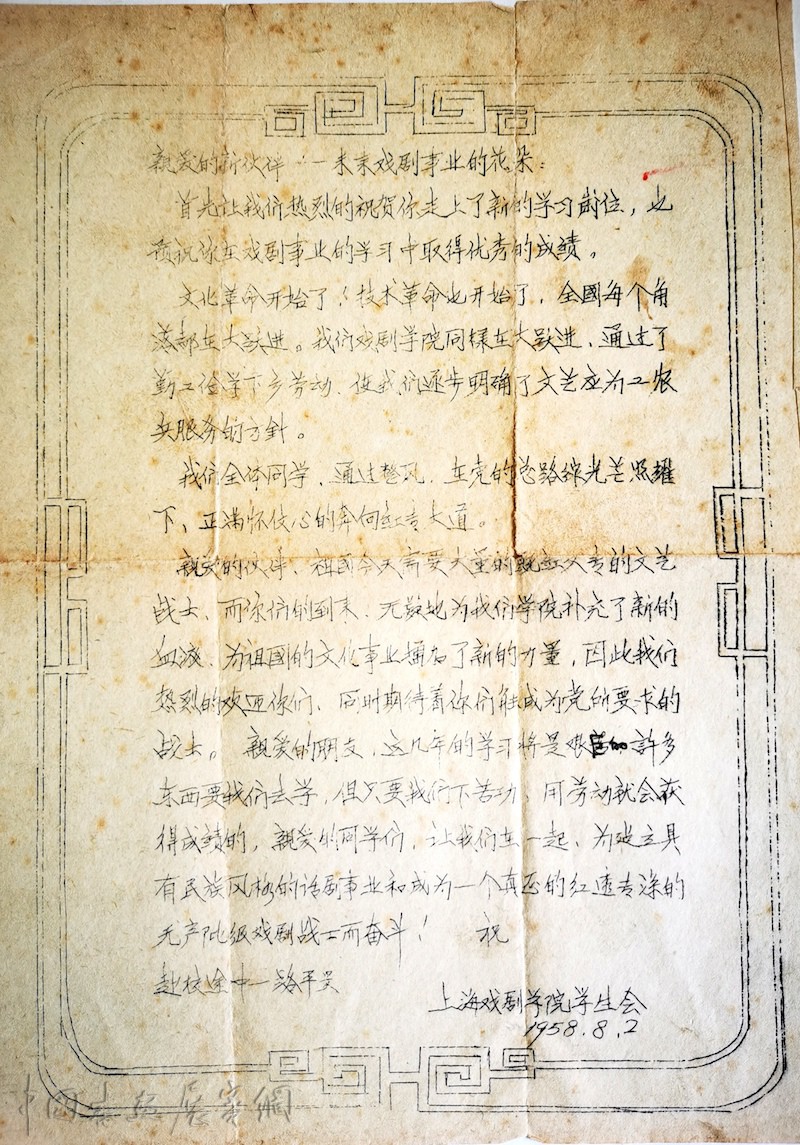 亲爱的新伙伴：一未来戏剧事业的花朵：
首先让我们热烈的祝贺你走上了新的学习岗位，也
预祝你在戏剧事业的学习中取得优秀的成绩。
文化革命开始了！技术革命也开始了，全國每个角
落都在大跃进。我们戏剧学院同样在大跃进，通过了
勤工俭学下乡劳动、使我们逐步明确了文艺应为工农
兵服务的方針。
我们全体同学、通过整风、在党的总路线光芒照耀
下、正满怀信心的奔向红专大道。
亲爱的伙伴、祖国今天需要大量的既红又专的文艺
战士、而你们的到来、无疑地为我们学院补充了新的
血液、为祖国的文化事业增加了新的力量，因此我们
热烈的欢迎你们、同时期待着你们能成为党所要求的
战士。亲爱的朋友、这几年的学习将是艰 許多
东西要我们去学，但只要我们下苦功、用劳动就会获
得成績的，亲爱的同学们，让我们在一起、为建立具
有民族风格的话剧事业和成为一个真正的红透专深的
无产阶级戏剧战士而奋斗！ 祝
赴校途中一路平安
上海戏剧学院学生会
1958.8.2
中國 展 網